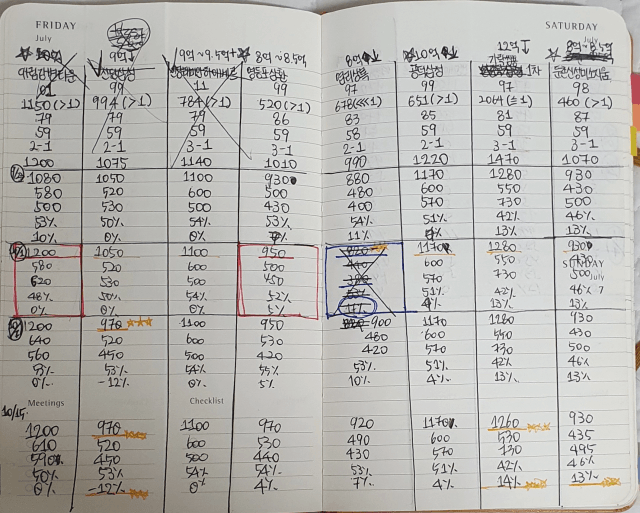 FRIDAY
July
9억↓
9억~9.5억
8억~8.5억
01 99 11 99
1150(>1) 994(>1) 784(>1) 520(>1)
79 79 79 86
59 59 59 59
2-1 2-1 3-1 3-1
1200 1075 1140 1010
1080 1050 1100 930
580 520 600 500
500 530 500 430
53% 50% 54% 53%
10% 0% 0%
1200 1050 1100 950
580 520 600 500
620 530 500 450
48% 50% 54% 52%
0% 0% 0% 5%
1200 970 1100 950
640 520 600 530
560 450 500 420
53% 53% 54% 55%
0% -12% 0% 5%
Meetings
Checklist
10/15
1200 970 1100 970
610 520 600 530
590 450 500 440
50% 53% 54% 54%
0% -12% 0% 4%
SATURDAY
July
8억
10억
12억↓
8억~8.5억
1차
97 99 97 98
678(<<1) 651(>1) 2064(≤1) 460(>1)
83 85 81 87
58 59 59 59
2-1 2-1 2-1 3-1
990 1220 1470 1070
880 1170 1280 930
480 600 550 430
400 570 730 500
54% 51% 42% 46%
11% 13% 13%
1170 1280 930
600 550 430
570 730 500
51% 42% 46%
4% 13% 13%
SUNDAY
July
7
900 1170 1280 930
480 600 550 430
420 570 730 500
53% 51% 42% 46%
10% 4% 13% 13%
920 1170 1260 930
490 600 530 435
430 570 730 495
53% 51% 42% 46%
7% 4% 14% 13%